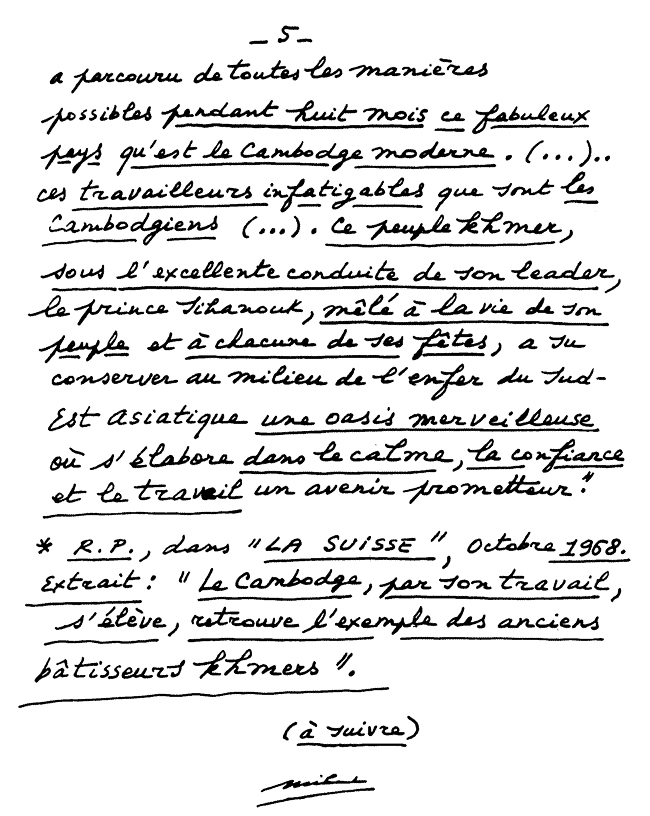 _ 5 _
a parcouru de toutes les manières
possibles pendant huit mois ce fabuleux
pays qu'est le Cambodge moderne. (...)..
ces travailleurs infatigables que sont les
Cambodgiens (...). Ce peuple khmer,
sous l'excellente conduite de son leader,
le prince Sihanouk, mêlé à la vie de son
peuple et à chacune de ses fêtes, a su
conserver au milieu de l'enfer du Sud-
Est Asiatique une oasis merveilleuse
où s'élabore dans le calme, la confiance
et le travail un avenir prometteur."
* R.P., dans "LA SUISSE", Octobre 1968.
Extrait : "Le Cambodge, par son travail,
s'élève, retrouve l'exemple des anciens
bâtisseurs khmers".
(à suivre)